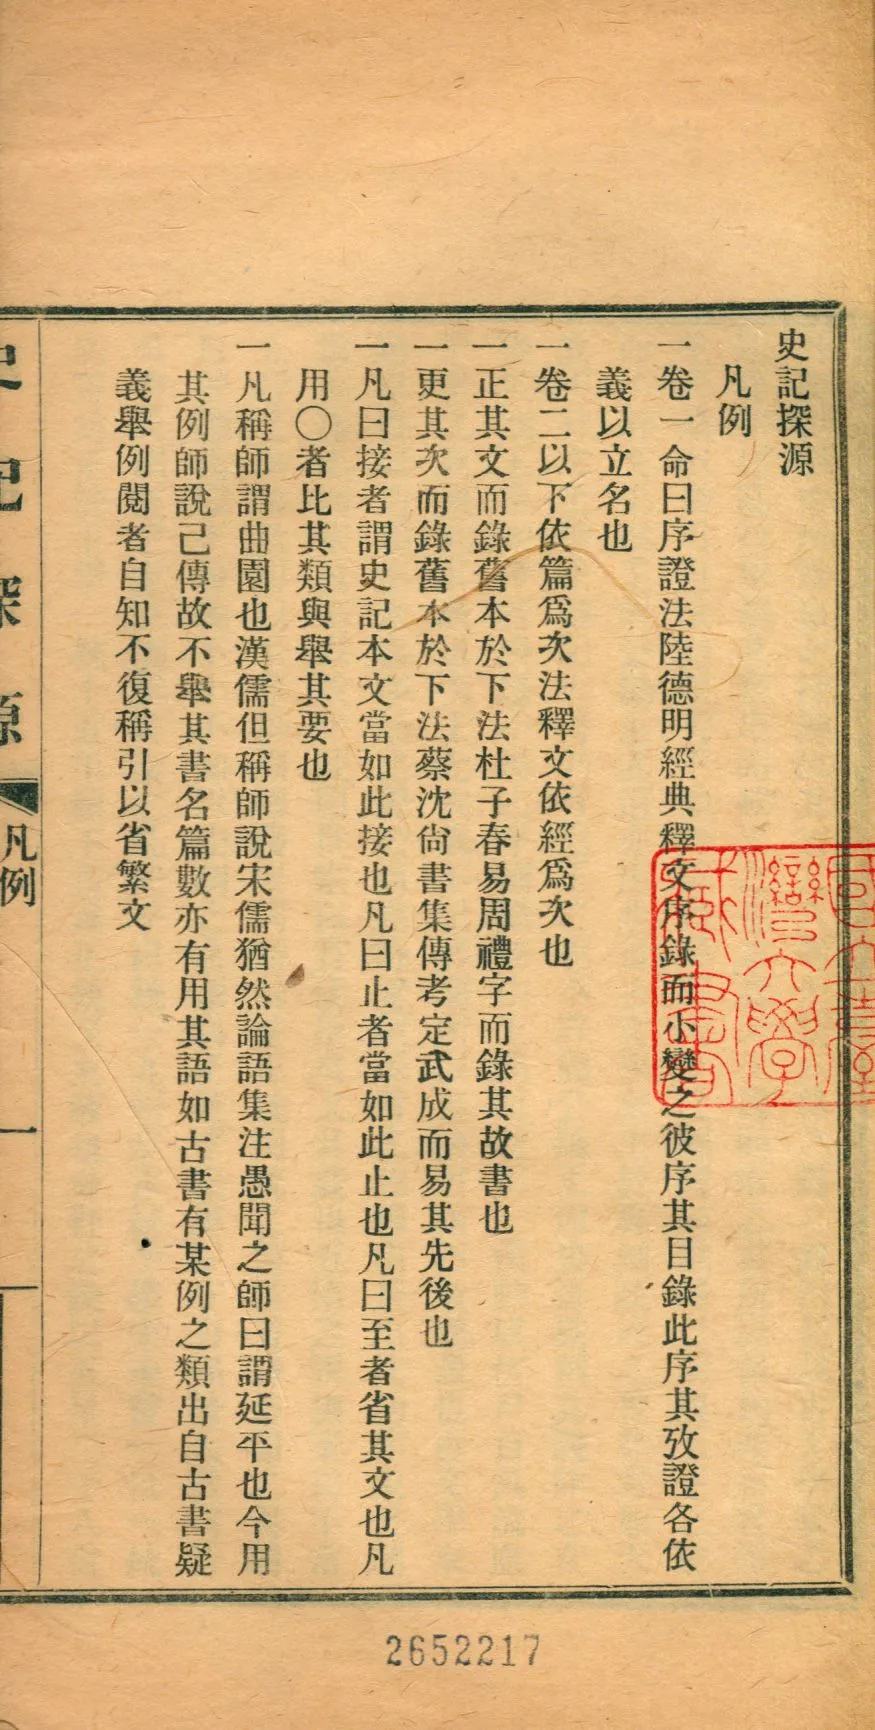 史記探源
凡例
一卷一命曰序證法陸德明經典釋文序錄而小變之彼序其目錄此序其攷證各依
義以立名也
一卷二以下依篇爲次法釋文依經爲次也
一正其文而錄舊本於下法杜子春易周禮字而錄其故書也
一更其次而錄舊本於下法蔡沈尙書集傳考定武成而易其先後也
一凡曰接者謂史記本文當如此接也凡曰止者當如此止也凡曰至者省其文也凡
用〇者比其類與舉其要也
一凡稱師謂曲園也漢儒但稱師說宋儒猶然論語集注愚聞之師曰謂延平也今用
其例師說已傳故不舉其書名篇數亦有用其語如古書有某例之類出自古書疑
義舉例閱者自知不復稱引以省繁文
史記探源
凡例
一
國立臺
灣大學
藏書
2652217